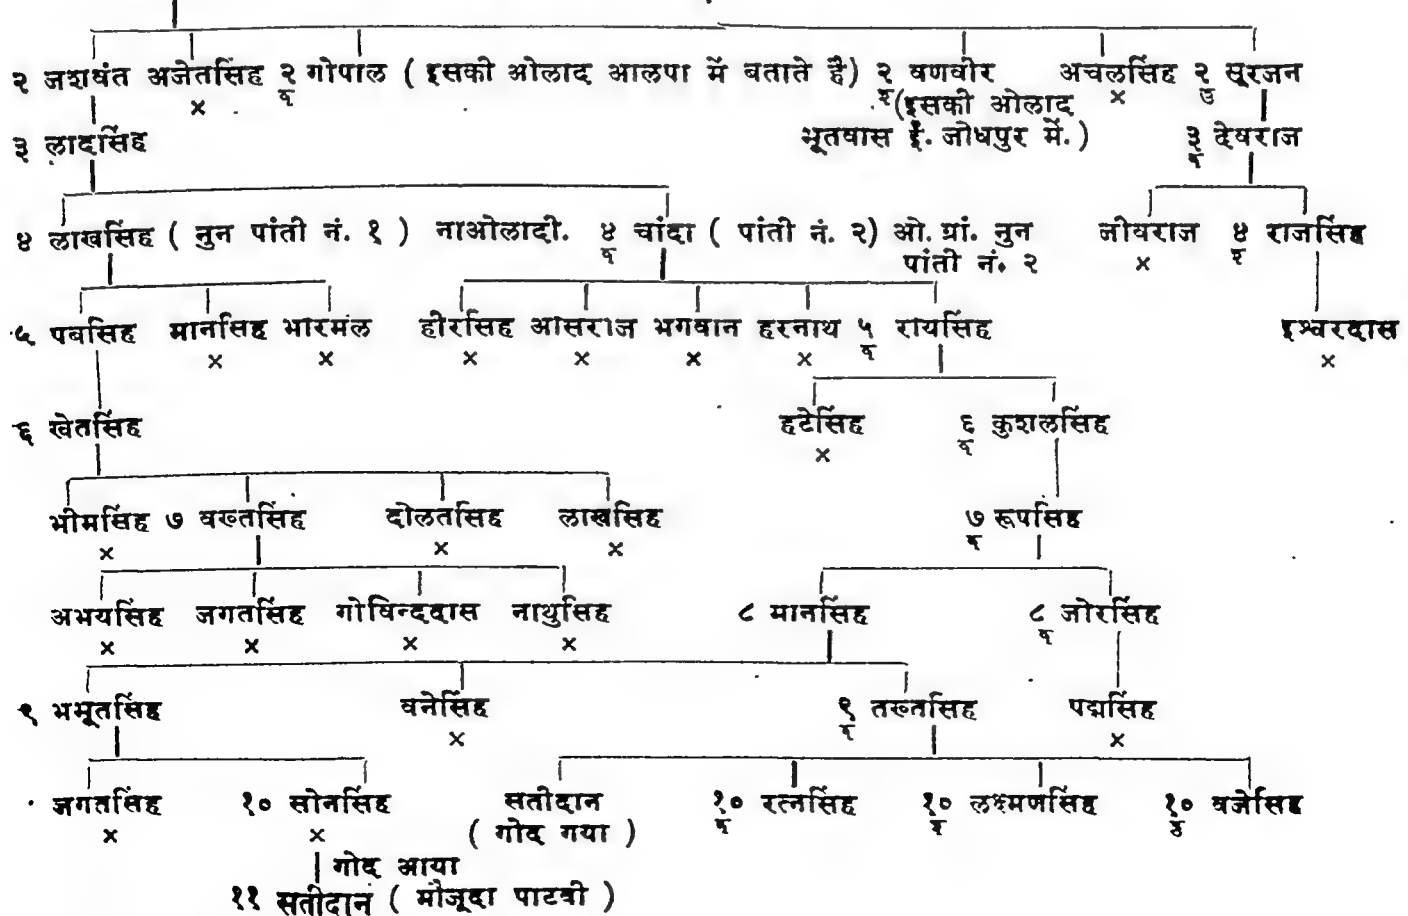 २ जशवंत अजेतसिंह २/१ गोपाल ( इसकी ओलाद आलपा में बताते है) २/२ वणवीर अचलसिंह २/३ सूरजन
× (इसकी ओलाद ×
३ लादसिंह भूतवास ई. जोधपुर में.) ३/१ देवराज
४ लाखसिंह ( नुन पांती नं. १ ) नाओलादी. ४/१ चांदा ( पांती नं. २) ओ. ग्रां. नुन जीवराज ४/२ राजसिंह
पांती नं. २ ×
५ पबसिंह मानसिंह भारमल हीरसिंह आसराज भगवान हरनाथ ५/१ रायसिंह इश्वरदास
× × × × × × ×
६ खेतसिंह हटेसिंह ६/१ कुशलसिंह
×
भीमसिंह ७ वख्तसिंह दोलतसिंह लाखसिंह ७/१ रूपसिंह
× × ×
अभयसिंह जगतसिंह गोविन्ददास नाथुसिंह ८ मानसिंह ८/१ जोरसिंह
× × × ×
९ भमूतसिंह वनेसिंह ९/१ तख्तसिंह पद्मसिंह
× ×
जगतसिंह १० सोनसिंह सतीदान १०/१ रत्नसिंह १०/२ लक्ष्मणसिंह १०/३ वजेसिंह
× × ( गोद गया )
गोद आया
११ सतीदान ( मौजूदा पाटवी )